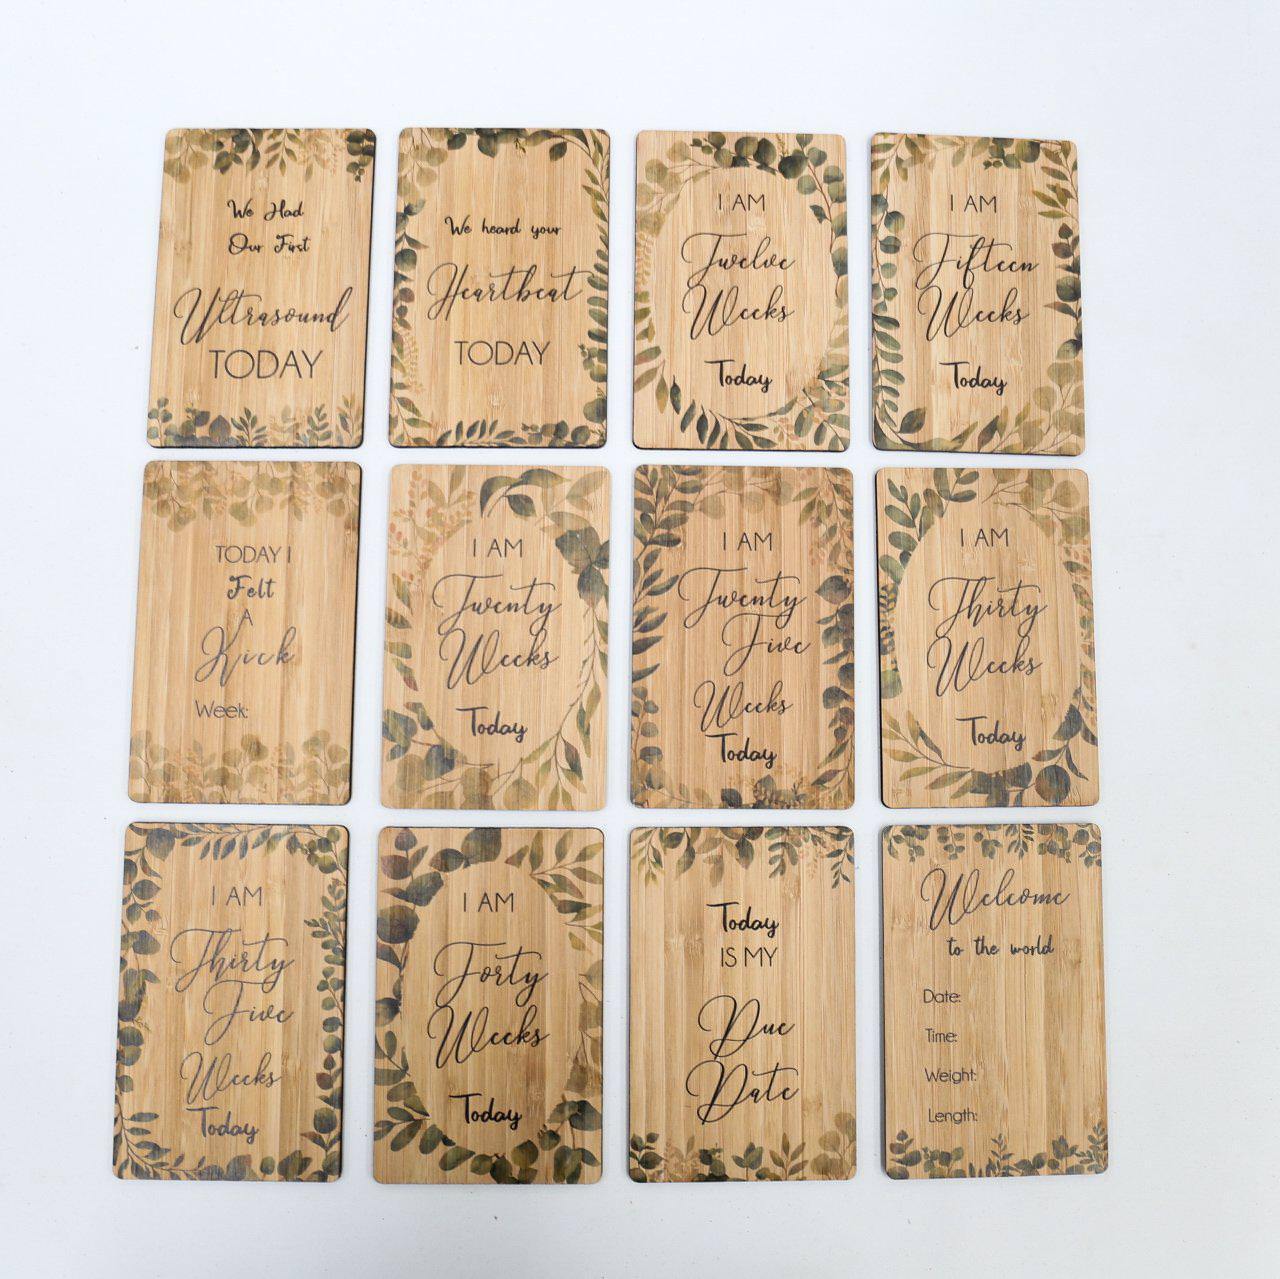 We Had
Our First
Ultrasound
TODAY
We heard your
Heartbeat
TODAY
I AM
Twelve
Weeks
Today
I AM
Fifteen
Weeks
Today
TODAY I
Felt
A
Kick
Week:
I AM
Twenty
Weeks
Today
I AM
Twenty
Five
Weeks
Today
I AM
Thirty
Weeks
Today
I AM
Thirty
Five
Weeks
Today
I AM
Forty
Weeks
Today
Today
IS MY
Due
Date
Welcome
to the world
Date:
Time:
Weight:
Length: